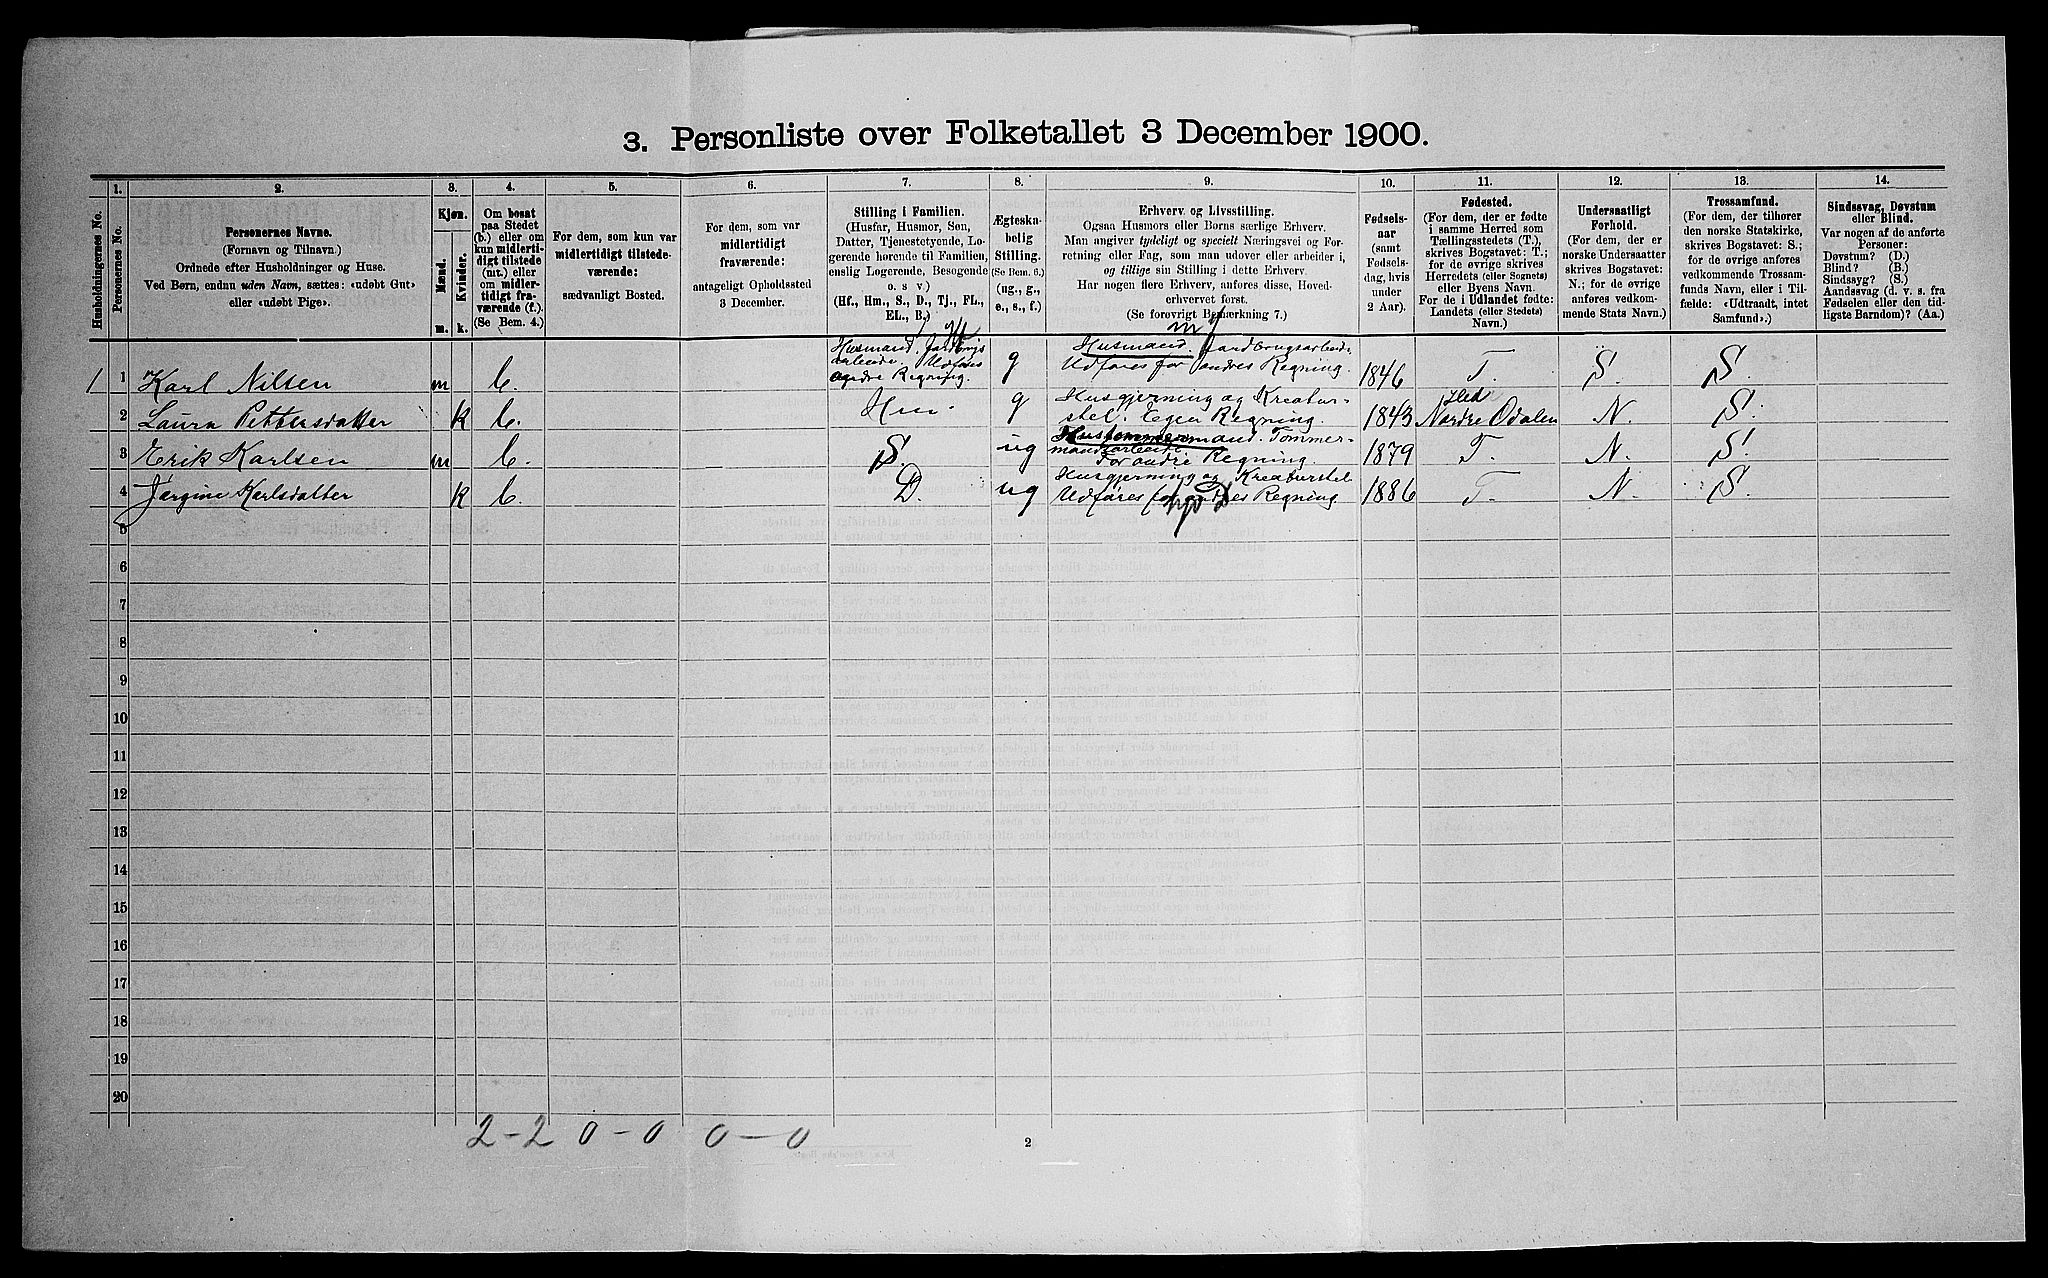 3. Personliste over Folketallet 3 December 1900.
1. 2. 3. 4. 5. 6. 7. 8. 9. 10. 11. 12. 13. 14.
Husholdningernes No.
Personernes No.
Personernes Navne.
(Fornavn og Tilnavn.)
Ordnede efter Husholdninger og Huse.
Ved Børn, endnu uden Navn, sættes: «udøbt Gut»
eller «udøbt Pige».
Kjøn.
Mænd.
Kvinder.
m. k.
Om bosat
paa Stedet
(b.) eller om
kun midlerti-
digt tilstede
(mt.) eller
om midler-
tidigt fra-
værende (f.).
(Se Bem. 4.)
For dem, som kun var
midlertidigt tilstede-
værende:
sædvanligt Bosted.
For dem, som var
midlertidigt
fraværende:
antageligt Opholdssted
3 December.
Stilling i Familien.
(Husfar, Husmor, Søn,
Datter, Tjenestetyende, Lo-
gerende hørende til Familien,
enslig Logerende, Besøgende
o. s v.)
(Hf., Hm., S., D., Tj., FL.,
EL., B.)
Ægteska-
belig
Stilling.
(Se Bem. 6.)
(ug., g.,
e., s., f.)
Erhverv og Livsstilling.
Ogsaa Husmors eller Børns særlige Erhverv.
Man angiver tydeligt og specielt Næringsvei og For-
retning eller Fag, som man udover eller arbeider i,
og tillige sin Stilling i dette Erhverv.
Har nogen flere Erhverv, anføres disse, Hoved-
erhvervet først.
(Se forøvrigt Bemærkning 7.)
Fødsels-
aar
(samt
Fødsels-
dag, hvis
under
2 Aar).
Fødested.
(For dem, der er fødte
i samme Herred som
Tællingsstedets (T.),
skrives Bogstavet: T.;
for de øvrige skrives
Herredets (eller Sognets)
eller Byens Navn.
For de i Udlandet fødte:
Landets (eller Stedets)
Navn.)
Undersaatligt
Forhold.
(For dem, der er
norske Undersaatter
skrives Bogstavet:
N.; for de øvrige
anføres vedkom-
mende Stats Navn.)
Trossamfund.
(For dem, der tilhører
den norske Statskirke,
skrives Bogstavet: S.;
for de øvrige anføres
vedkommende Trossam-
funds Navn, eller i Til-
fælde: «Udtraadt, intet
Samfund».)
Sindssvag, Døvstum
eller Blind.
Var nogen af de anførte
Personer:
Døvstum? (D.)
Blind? (B.)
Sindssyg? (S.)
Aandssvag (d. v. s. fra
Fødselen eller den tid-
ligste Barndom)? (Aa.)
1 1 Karl Nilsen m b. Husmand. Jordbrugs arbeide. Udføres andre Regning. g Husmand. Jordbrugsarbeide. Udføres for andres Regning. 1846 T. S. S.
2 Laura Pettersdatter k b. Hm. g Husgjerning og Kreatur- stel. Egen Regning. 1843 Hed Nordre Odalen N. S.
3 Erik Karlsen m b. S. ug Tømmer- mand arbeide For andre Regning. 1879 T. N. S.
4 Jørgine Karlsdatter k b. D. ug Husgjerning og Kreaturstel Udføres for andres Regning. 1886 T. N. S.
5
6
7
8
9
10
11
12
13
14
15
16
17
18
19
20
2-2 0-0 0-0
2